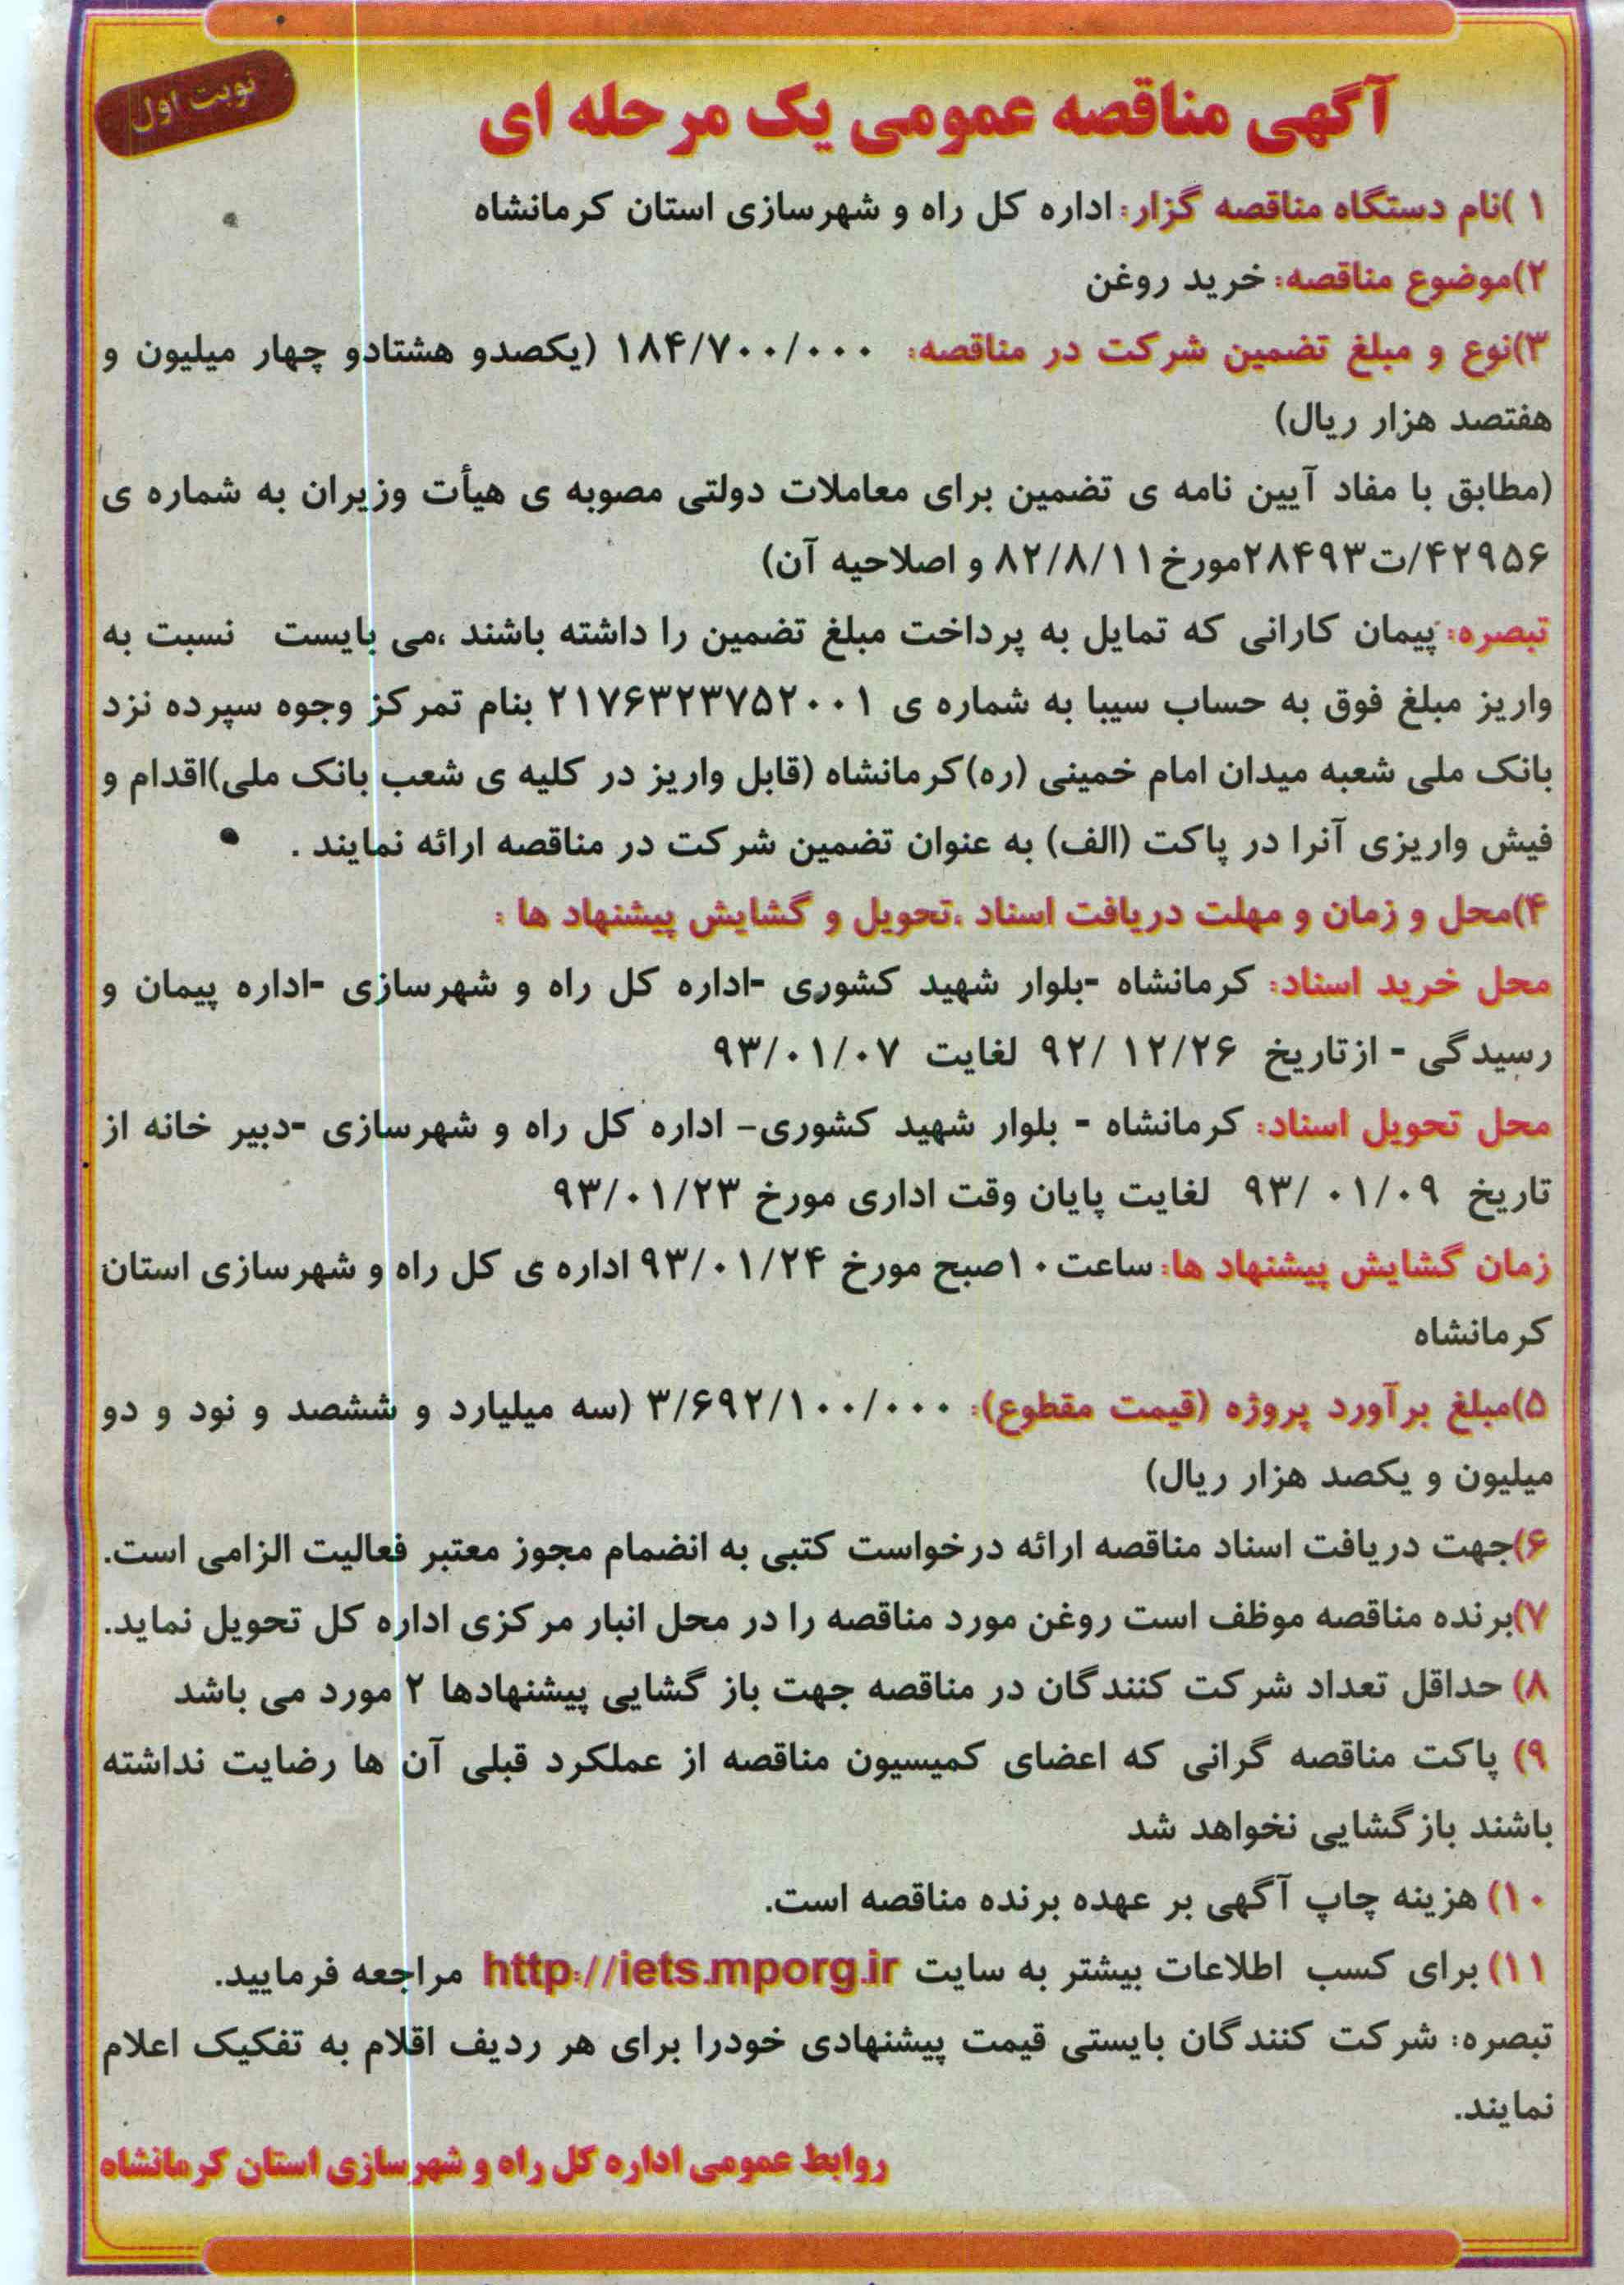 نوبت اول
آگهی مناقصه عمومی یک مرحله ای
۱ )نام دستگاه مناقصه گزار: اداره کل راه و شهرسازی استان کرمانشاه
۲)موضوع مناقصه: خرید روغن
۳)نوع و مبلغ تضمین شرکت در مناقصه: ۱۸۴/۷۰۰/۰۰۰ (یکصدو هشتادو چهار میلیون و
هفتصد هزار ریال)
(مطابق با مفاد آیین نامه ی تضمین برای معاملات دولتی مصوبه ی هیأت وزیران به شماره ی
۴۲۹۵۶/ت۲۸۴۹۳مورخ۸۲/۸/۱۱ و اصلاحیه آن)
تبصره: پیمان کارانی که تمایل به پرداخت مبلغ تضمین را داشته باشند ،می بایست نسبت به
واریز مبلغ فوق به حساب سیبا به شماره ی ۲۱۷۶۳۲۳۷۵۲۰۰۱ بنام تمرکز وجوه سپرده نزد
بانک ملی شعبه میدان امام خمینی (ره)کرمانشاه (قابل واریز در کلیه ی شعب بانک ملی)اقدام و
فیش واریزی آنرا در پاکت (الف) به عنوان تضمین شرکت در مناقصه ارائه نمایند .
۴)محل و زمان و مهلت دریافت اسناد ،تحویل و گشایش پیشنهاد ها :
محل خرید اسناد: کرمانشاه -بلوار شهید کشوری -اداره کل راه و شهرسازی -اداره پیمان و
رسیدگی - ازتاریخ ۹۲/ ۱۲/۲۶ لغایت ۹۳/۰۱/۰۷
محل تحویل اسناد: کرمانشاه - بلوار شهید کشوری- اداره کل راه و شهرسازی -دبیر خانه از
تاریخ ۹۳/ ۰۱/۰۹ لغایت پایان وقت اداری مورخ ۹۳/۰۱/۲۳
زمان گشایش پیشنهاد ها: ساعت۱۰صبح مورخ ۹۳/۰۱/۲۴ اداره ی کل راه و شهرسازی استان
کرمانشاه
۵)مبلغ برآورد پروژه (قیمت مقطوع): ۳/۶۹۲/۱۰۰/۰۰۰ (سه میلیارد و ششصد و نود و دو
میلیون و یکصد هزار ریال)
۶)جهت دریافت اسناد مناقصه ارائه درخواست کتبی به انضمام مجوز معتبر فعالیت الزامی است.
۷)برنده مناقصه موظف است روغن مورد مناقصه را در محل انبار مرکزی اداره کل تحویل نماید.
۸) حداقل تعداد شرکت کنندگان در مناقصه جهت باز گشایی پیشنهادها ۲ مورد می باشد
۹) پاکت مناقصه گرانی که اعضای کمیسیون مناقصه از عملکرد قبلی آن ها رضایت نداشته
باشند بازگشایی نخواهد شد
۱۰) هزینه چاپ آگهی بر عهده برنده مناقصه است.
۱۱) برای کسب اطلاعات بیشتر به سایت http://iets.mporg.ir مراجعه فرمایید.
تبصره: شرکت کنندگان بایستی قیمت پیشنهادی خودرا برای هر ردیف اقلام به تفکیک اعلام
نمایند.
روابط عمومی اداره کل راه و شهرسازی استان کرمانشاه